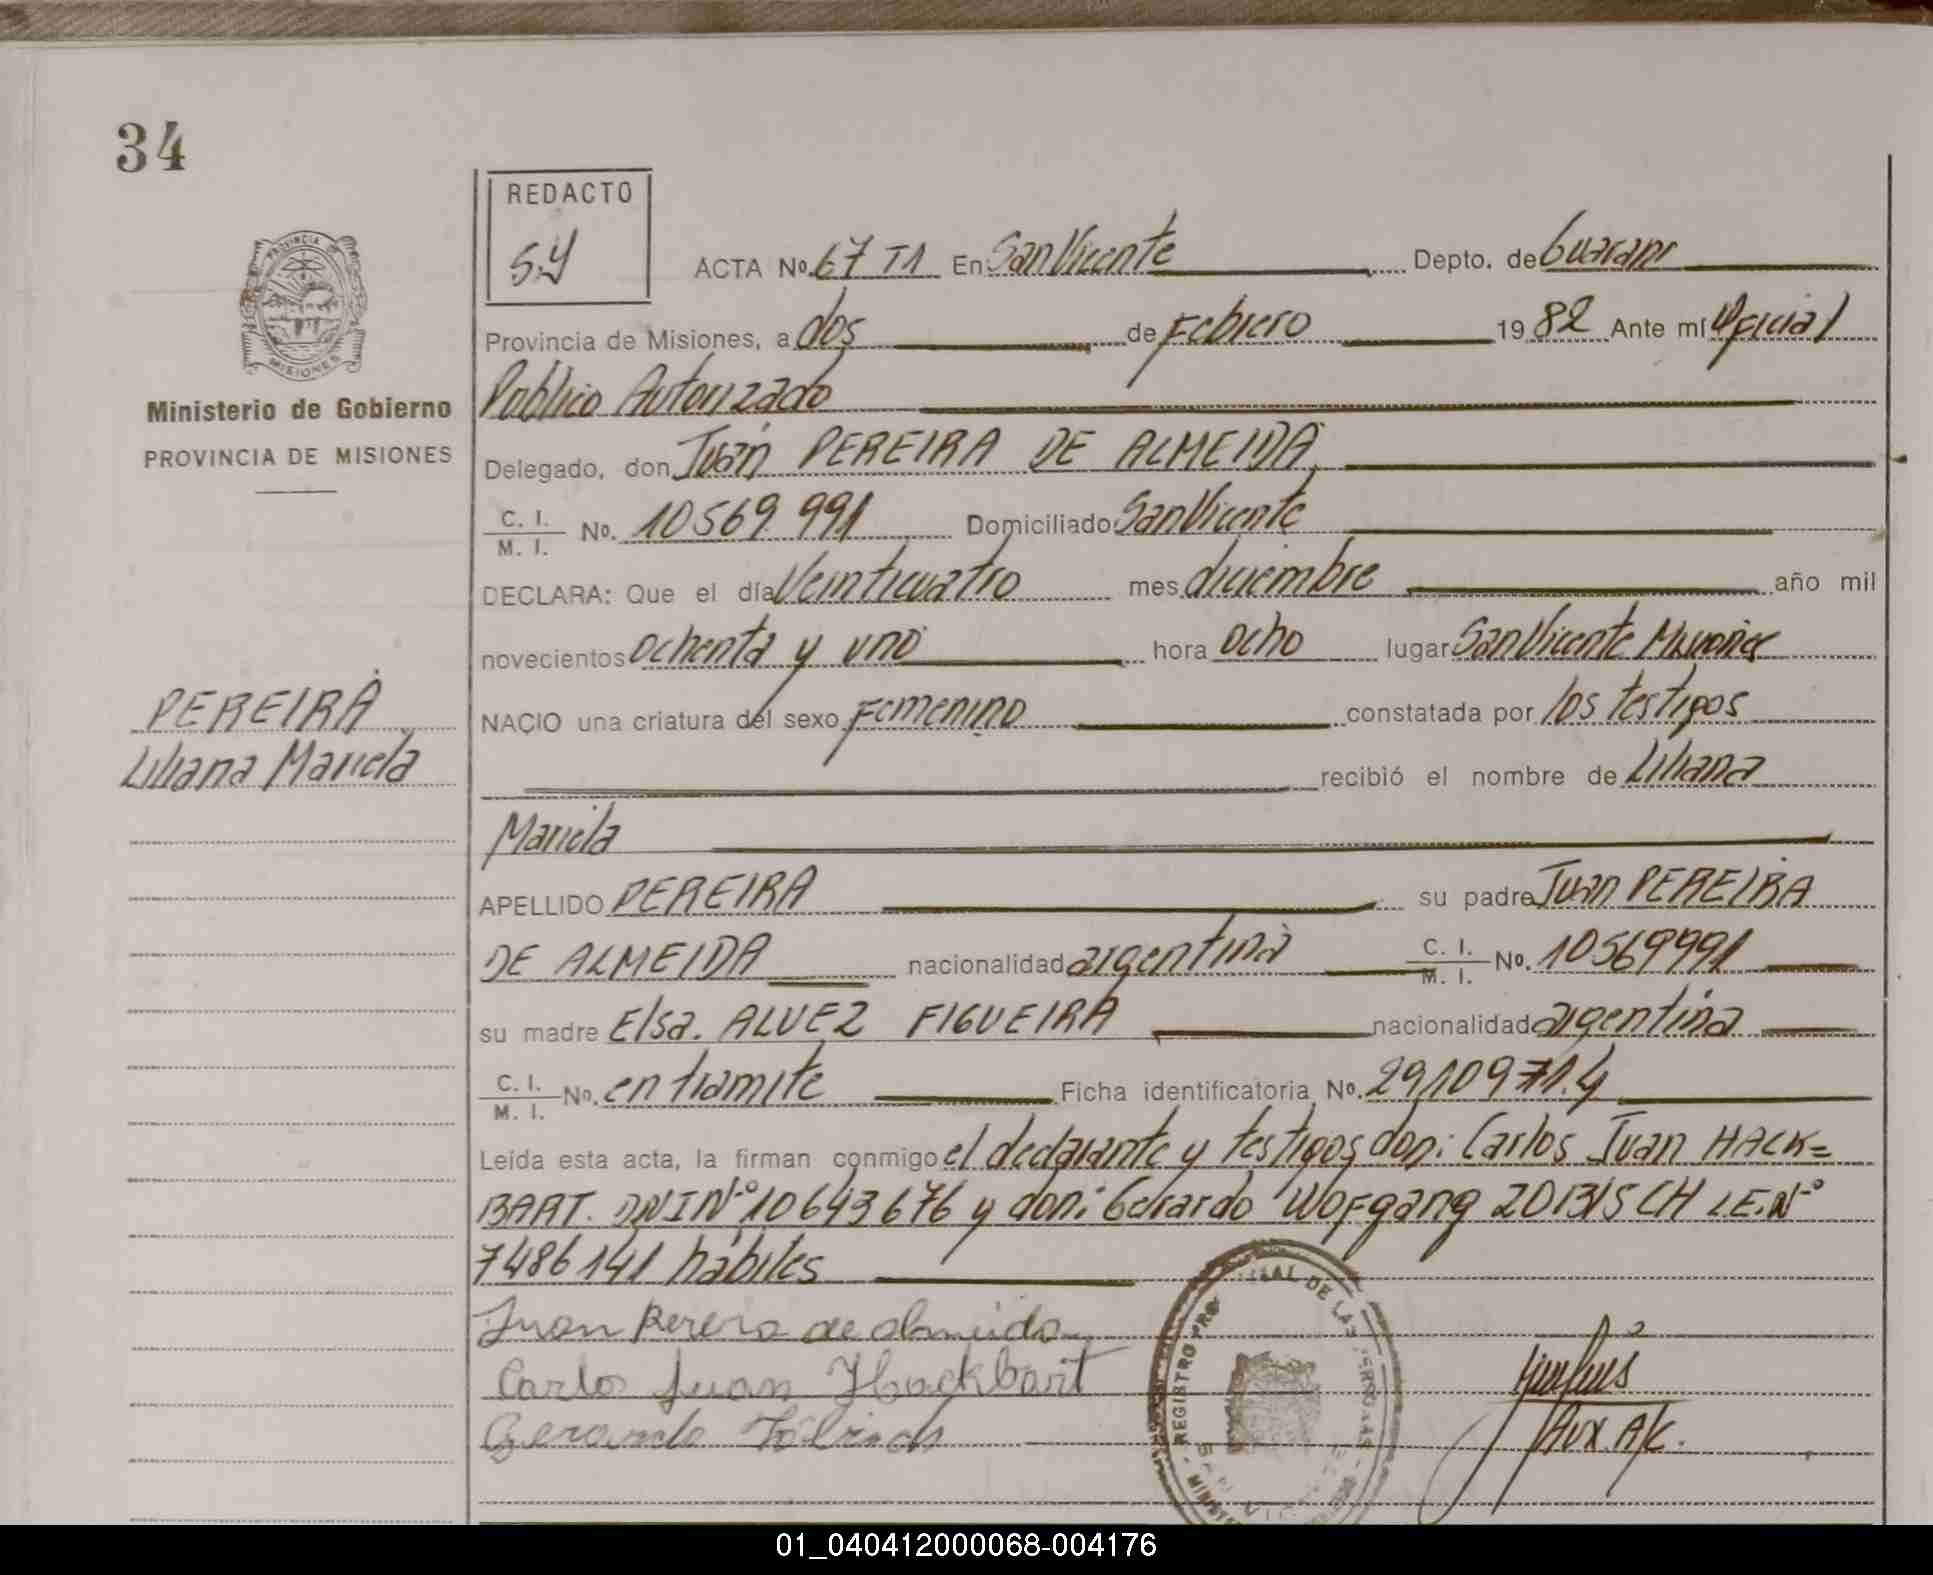 34
REDACTO
S.Y
PROVINCIA
MISIONES
Ministerio de Gobierno
PROVINCIA DE MISIONES
PEREIRA
Liliana Mariela
ACTA No. 67 T1 En San Vicente Depto. de Guarani
Provincia de Misiones, a dos de Febrero 19 82 Ante mí Oficial
Publico Autorizado
Delegado, don Juan PEREIRA DE ALMEIDA
C. I. / M. I. No. 10569.991 Domiciliado San Vicente
DECLARA: Que el día Veinticuatro mes diciembre año mil
novecientos ochenta y uno hora ocho lugar San Vicente Misiones
NACIO una criatura del sexo Femenino constatada por los testigos
recibió el nombre de Liliana
Mariela
APELLIDO PEREIRA su padre Juan PEREIRA
DE ALMEIDA nacionalidad argentina C. I. / M. I. No. 10569991
su madre Elsa. ALVEZ FIGUEIRA nacionalidad argentina
C. I. / M. I. No. en tramite Ficha identificatoria No. 2910971.4
Leída esta acta, la firman conmigo el declarante y testigos don: Carlos Juan HACK=
BART. DNI Nº 10643676 y don: Gerardo Wofgang ZOBISCH L.E.Nº
7486141 hábiles
Juan Perera de almeida
Carlo Juan Hackbart
Gerardo
REGISTRO DE LAS
Aux. A/C.
01_040412000068-004176